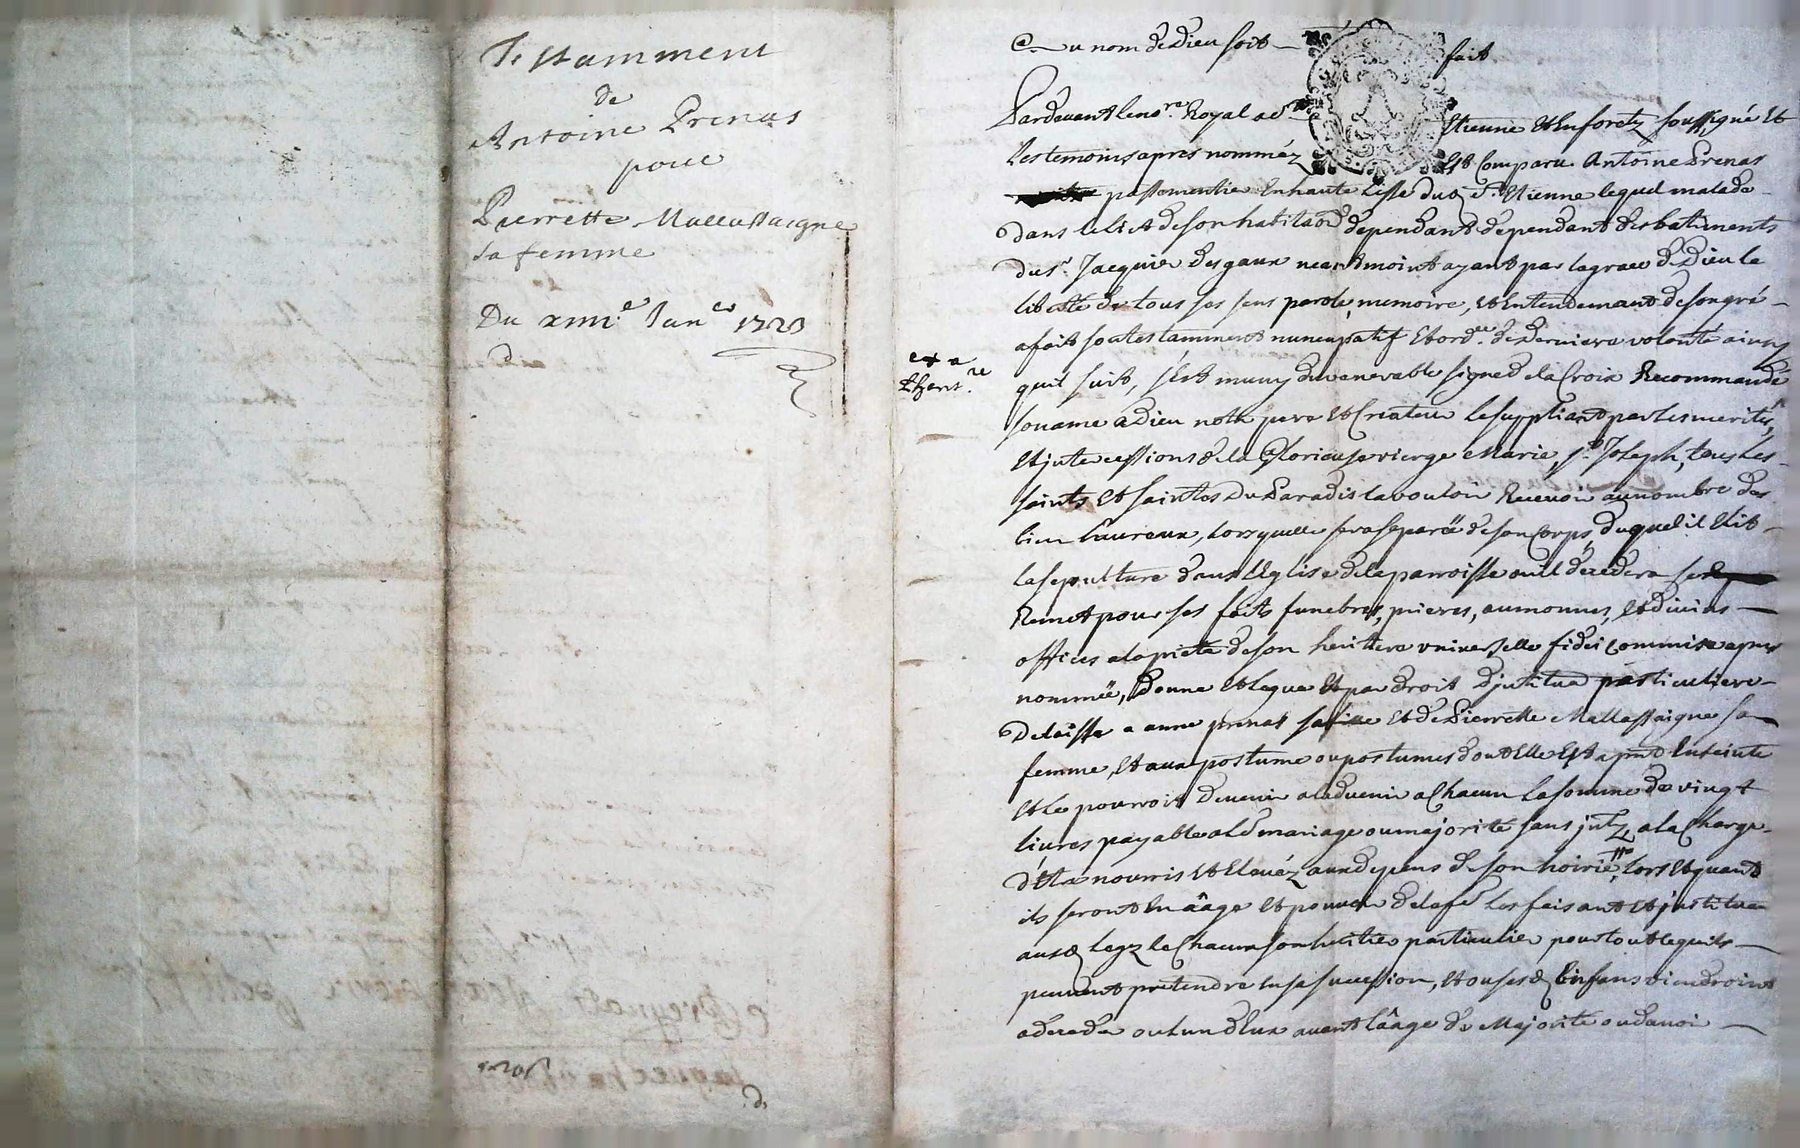 Testamment
de
Antoine Prenas
pour
Pierrette Mallassaigne
sa femme
Du xiiii.e Janer 1723
d
Au nom de Dieu soit fait
Pardevant le nore. Royal a St Etienne Et En foretz soussigné Et
Les temoins apres nomméz Est Comparu Antoine Prenas
passementier En haute Lisse dud St. Etienne lequel malade
Dans le lict de son habitaon dependant dependant des batiments
du sr. Jacquier Desgaux neantmoint ayant par la grace de Dieu la
liberté de tous ses sens parole, memoire, Et Entendemant de son gré
a fait son testamment nuncupatif Et ordce. de Derniere volonté ainsy
quil suit, s'est muny du venerable signe de la Croix Recommandé
son ame a Dieu notre pere Et Createur le suppliant par les merites,
Et jntercessions de la Glorieuse vierge Marie, st. Joseph, tous les
saints Et Saintes Du Paradis la vouloir Recevoir au nombre des
bien heureux, Lors quelle sera separée de son Corps, duquel il Elit
la sepulture dans L'Eglise de la parroisse ou il decedera se
Remet pour ses faits funebres, prieres, aumonnes, Et divins
offices a la pieté de son heritiere universelle fidei commise apres
nommée, Donne Et legue Et par droit d'jnstitution particuliere
Delaisse a anne prenas sa fille Et de Pierrette Mallassaigne sa
femme, Et aux postume ou postumes dont Elle Est a pnt Enceinte
Et le pourroit devenir a ladvenir a Chacun La somme de vingt
livres payable a Ld mariage ou majorité sans jntz, a la Charge
d'Etre nourris Et Elevéz aux depens de son hoirie, Lors Et quant
ils seront En âage Et pouvoir de le fe Les faisant Et jnstituant
ausd Legz Chacun son heritier particulier pour tout ce quils
peuvent pretendre En sa succession, Et ou sesd Enfans viendroint
a deceder ou lun d'Eux avant lâage de Majorité ou davoir
exa